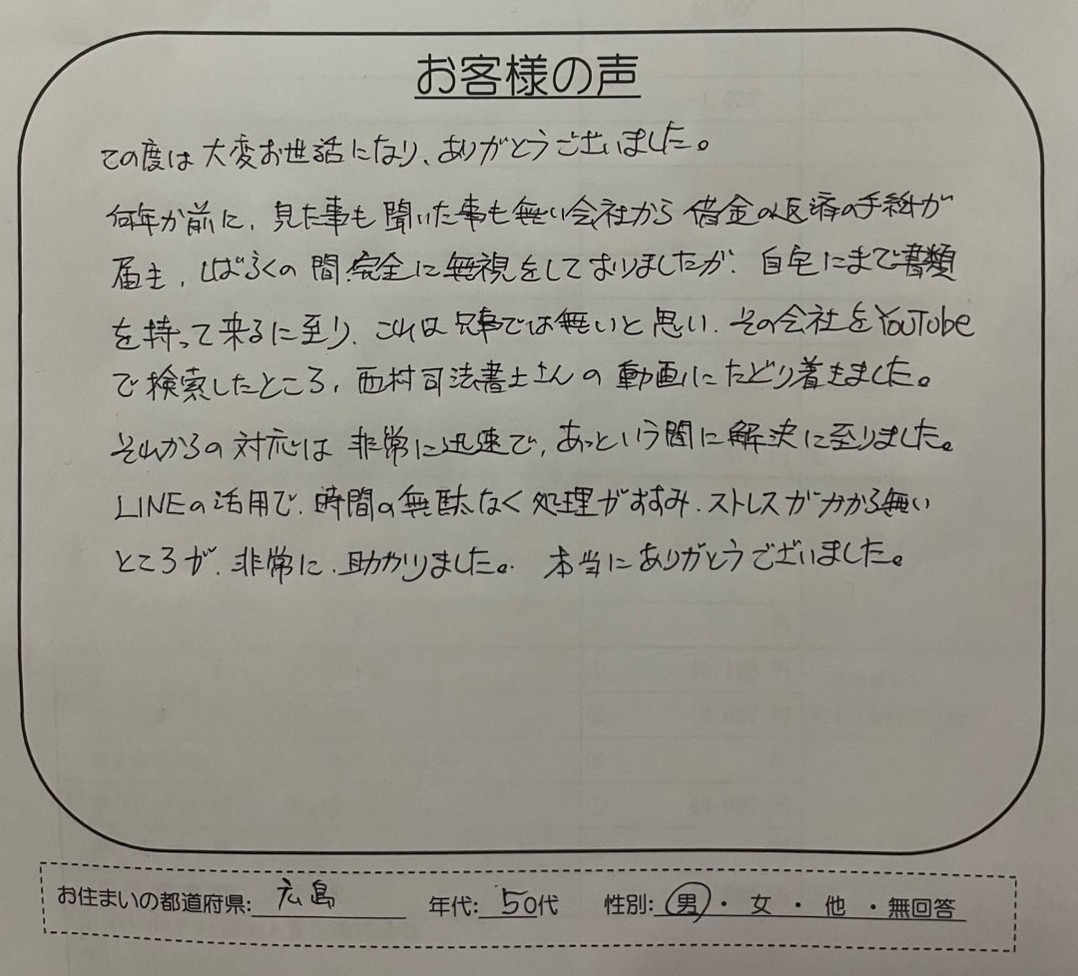 お客様の声
この度は大変お世話になり、ありがとうございました。
何年か前に、見た事も聞いた事も無い会社から借金の返済の手紙が
届き、しばらくの間完全に無視をしておりましたが、自宅にまで書類
を持って来るに至り、これは只事では無いと思い、その会社をYouTube
で検索したところ、西村司法書士さんの動画にたどり着きました。
それからの対応は非常に迅速で、あっという間に解決に至りました。
LINEの活用で、時間の無駄なく処理がすすみ、ストレスがかから無い
ところが、非常に、助かりました。本当にありがとうございました。
お住まいの都道府県: 広島 年代: 50代 性別: 男・女・他・無回答